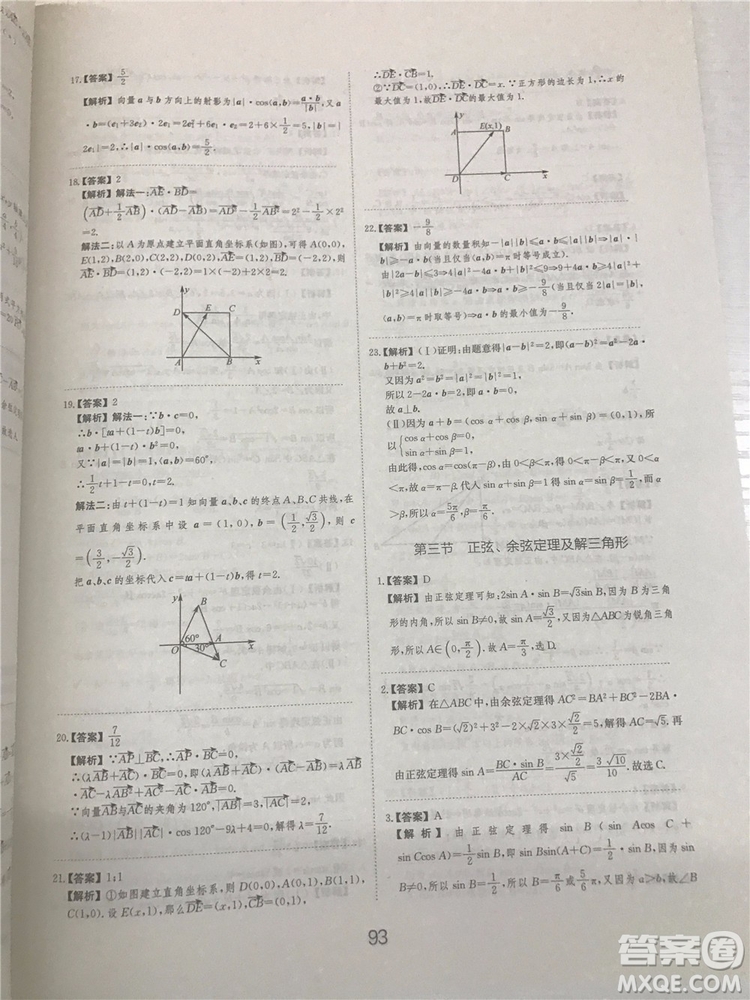 17.【答案】5/2
【解析】向量a与b方向上的射影为|a|·cos⟨a,b⟩=a·b/|b|,又a
·b=(e₁+3e₂)·2e₁=2e₁²+6e₁·e₂=2+6×1/2=5,|b|=
|2e₁|=2,∴|a|·cos⟨a,b⟩=5/2.
18.【答案】2
【解析】解法一:AE·BD=
(AD+1/2AB)·(AD−AB)=AD²−1/2AB²=2²−1/2×2²
=2.
解法二:以A为原点建立平面直角坐标系(如图),可得A(0,0),
E(1,2),B(2,0),C(2,2),D(0,2),∴AE=(1,2),BD=(−2,2),
则AE·BD=(1,2)·(−2,2)=1×(−2)+2×2=2.
y
D E C
A B x
19.【答案】2
【解析】解法一:∵b·c=0,
∴b·[ta+(1−t)b]=0,
ta·b+(1−t)·b²=0,
又∵|a|=|b|=1,⟨a,b⟩=60°,
∴1/2t+1−t=0,t=2.
解法二:由t+(1−t)=1知向量a,b,c的终点A,B,C共线,在
平面直角坐标系中设a=(1,0),b=(1/2,√3/2),则c=
(3/2,−√3/2).
把a,b,c的坐标代入c=ta+(1−t)b,得t=2.
y
B
60°
O 30° A x
C
20.【答案】7/12
【解析】∵AP⊥BC,∴AP·BC=0,
∴(λAB+AC)·BC=0,即(λAB+AC)·(AC−AB)=λAB
·AC−λAB²+AC²−AC·AB=0.
∵向量AB与AC的夹角为120°,|AB|=3,|AC|=2,
∴(λ−1)|AB||AC|·cos120°−9λ+4=0,解得λ=7/12.
21.【答案】1;1
【解析】①如图建立直角坐标系,则D(0,0),A(0,1),B(1,1),
C(1,0).设E(x,1),那么DE=(x,1),CB=(0,1),
∴DE·CB=1,
②∵DC=(1,0),∴DE·DC=x.∵正方形的边长为1,∴x的
最大值为1,故DE·DC的最大值为1.
y
A E(x,1) B
D C x
22.【答案】−9/8
【解析】由向量的数量积知−|a||b|≤a·b≤|a||b|⇒|a||b|
≥−a·b(当且仅当⟨a,b⟩=π时等号成立).
由|2a−b|≤3⇒4|a|²−4a·b+|b|²≤9⇒9+4a·b≥4|a|²+
|b|²≥4|a||b|≥−4a·b⇒a·b≥−9/8(当且仅当2|a|=|b|,
⟨a,b⟩=π时取等号)⇒a·b的最小值为−9/8.
23.【解析】(Ⅰ)证明:由题意得|a−b|²=2,即(a−b)²=a²−2a·b+b²=2.
又因为a²=b²=|a|²=|b|²=1,
所以2−2a·b=2,即a·b=0,
故a⊥b.
(Ⅱ)因为a+b=(cos α+cos β,sin α+sin β)=(0,1),所
以{cos α+cos β=0,
sin α+sin β=1,
由此得,cos α=cos(π−β),由0<β<π,得0<π−β<π,又0<α
<π,故α=π−β.代入sin α+sin β=1得,sin α=sin β=1/2,而
α>β,所以α=5π/6,β=π/6.
第三节 正弦、余弦定理及解三角形
1.【答案】D
【解析】由正弦定理可知:2sin A·sin B=√3sin B,因为B为三角
形的内角,所以sin B≠0,故sin A=√3/2,又因为△ABC为锐角三角
形,所以A∈(0,π/2).故A=π/3,选D.
2.【答案】C
【解析】在△ABC中,由余弦定理得AC²=BA²+BC²−2BA·
BC·cos B=(√2)²+3²−2×√2×3×√2/2=5,解得AC=√5,再
由正弦定理得sin A=BC·sin B/AC=3×√2/2/√5=3√10/10.故选C.
3.【答案】A
【解析】由正弦定理得sin B(sin Acos C+
sin Ccos A)=1/2sin B,即sin Bsin(A+C)=1/2sin B,因为
sin B≠0,所以sin B=1/2,所以B=π/6或5π/6,又因为a>b,故∠B
93
答案圈
MXQE.COM